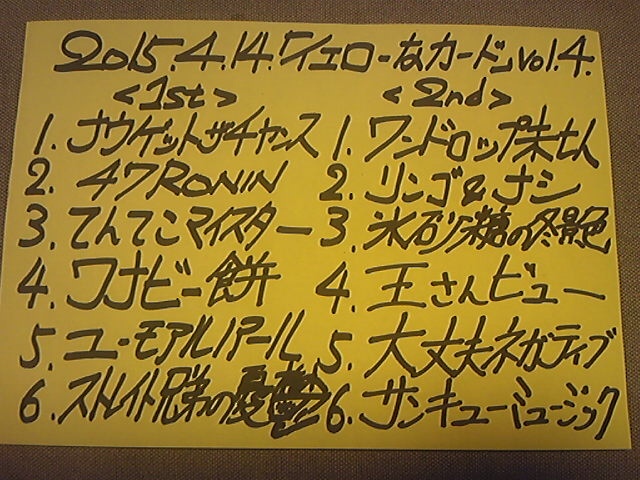 2015.4.14.「イエローなカード」vol.4.
<1st>
1. ナウゲットザチャンス
2. 47RONIN
3. てんてこマイスター
4. ワナビー餅
5. ユーモアルノアール
6. ストレイト兄弟の憂鬱
<2nd>
1. ワンドロップ朱せん
2. リンゴ&ナシ
3. 氷砂糖の冬景色
4. 王さんビュー
5. 大丈夫ネガティブ
6. サンキューミュージック